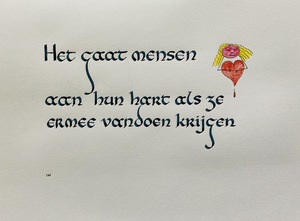 Het gaat mensen
aan hun hart als ze
ermee vandoen krijgen